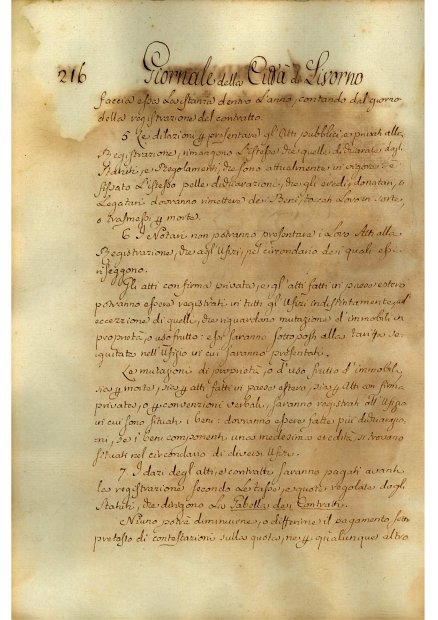 216 Giornale della Città di Livorno
faccia essa la stanza dentro l'anno, contando dal giorno
della registrazione del contratto.
5 Le dilazioni p presentare gl'Atti pubblici e privati alla
Registrazione, rimangono l'istesse, che quelle dichiarate dagli
Statuti, e Regolamenti, che sono attualmente in vigore; è
l'istesso pelle dichiarazioni, che gli eredi, donatari, o
Legatari dovranno rimettere dei Beni, toccati loro in sorte,
o trasmessi p morte.
6 I Notari non potranno presentare i loro Atti alla
Registrazione, che agl'Ufizi, pel circondario dei quali essi
riseggono.
Gli atti con firma privata, e gl'atti fatti in paese estero
potranno essere registrati in tutti gl'Ufizi indistintamente, ad
eccezzione di quelli, che riguardano mutazione d'immobili in
proprietà, o usofrutto: essi saranno sottoposti alla tariffa
seguitata nell'Ufizio in cui saranno presentati.
Le mutazioni di proprietà, o d'usofrutto d'immobili,
sia p morte, sia p atti fatti in paese estero, sia p Atti con firma
privata, o p convenzioni verbali, saranno registrati all'Ufizio
in cui sono situati i beni: dovranno essere fatte più dichiarazioni,
se i beni componenti una medesima eredità, si trovano
situati nel circondario di diversi Ufizi.
7 I dazi degl'atti, e contratti saranno pagati avanti
la registrazione secondo le tasse, e quote regolate dagli
Statuti, che dirigono la Tabella dei Contratti.
Niuno potrà diminuirne, o differirne il pagamento, sotto
pretesto di contestazioni sulla quota, ne p qualunque altro